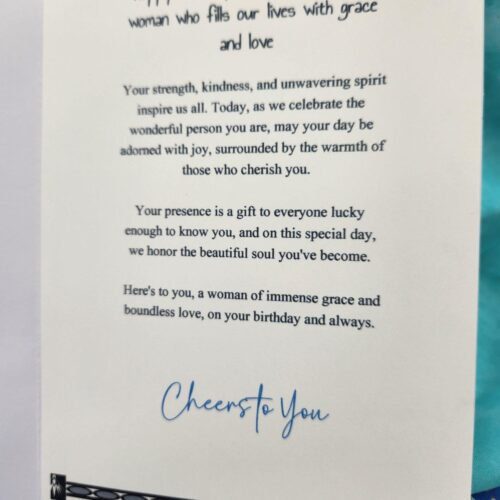 woman who fills our lives with grace
and love
Your strength, kindness, and unwavering spirit
inspire us all. Today, as we celebrate the
wonderful person you are, may your day be
adorned with joy, surrounded by the warmth of
those who cherish you.
Your presence is a gift to everyone lucky
enough to know you, and on this special day,
we honor the beautiful soul you've become.
Here's to you, a woman of immense grace and
boundless love, on your birthday and always.
Cheers to You